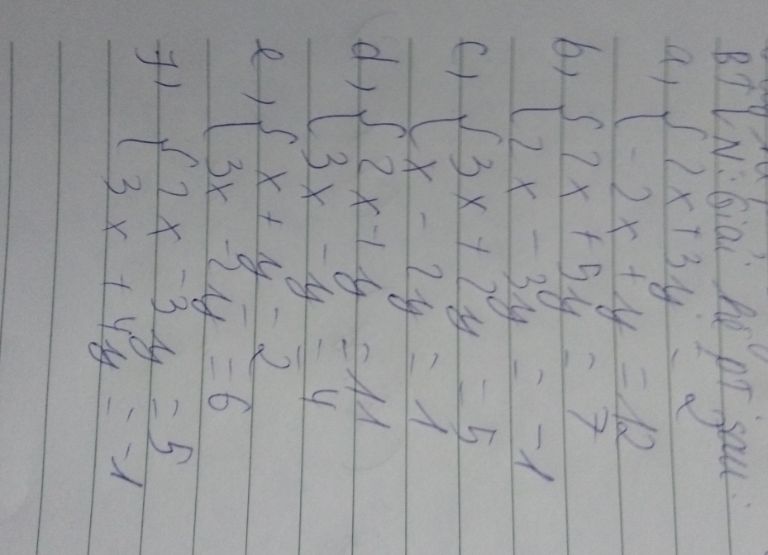 BTVN: Giải hệ pt sau:
a, { 2x + 3y = 2
-2x + y = 12
b, { 2x + 5y = 7
2x - 3y = -1
c, { 3x + 2y = 5
x - 2y = 1
d, { 2x + y = 11
3x - y = 4
e, { x + y = 2
3x - 2y = 6
f, { 2x - 3y = 5
3x + 4y = -1